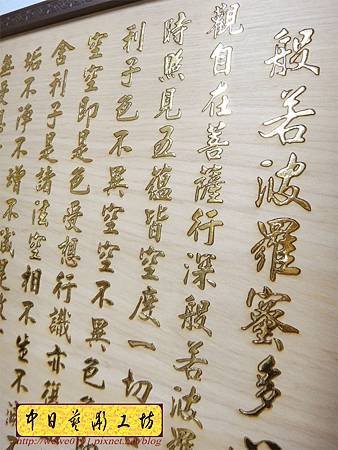 般若波羅蜜多
觀自在菩薩行深般若波羅
時照見五蘊皆空度一切
利子色不異空空不異色
空空即是色受想行識亦復
舍利子是諸法空相不生不滅
垢不淨不增不減是故
中日藝彫工坊